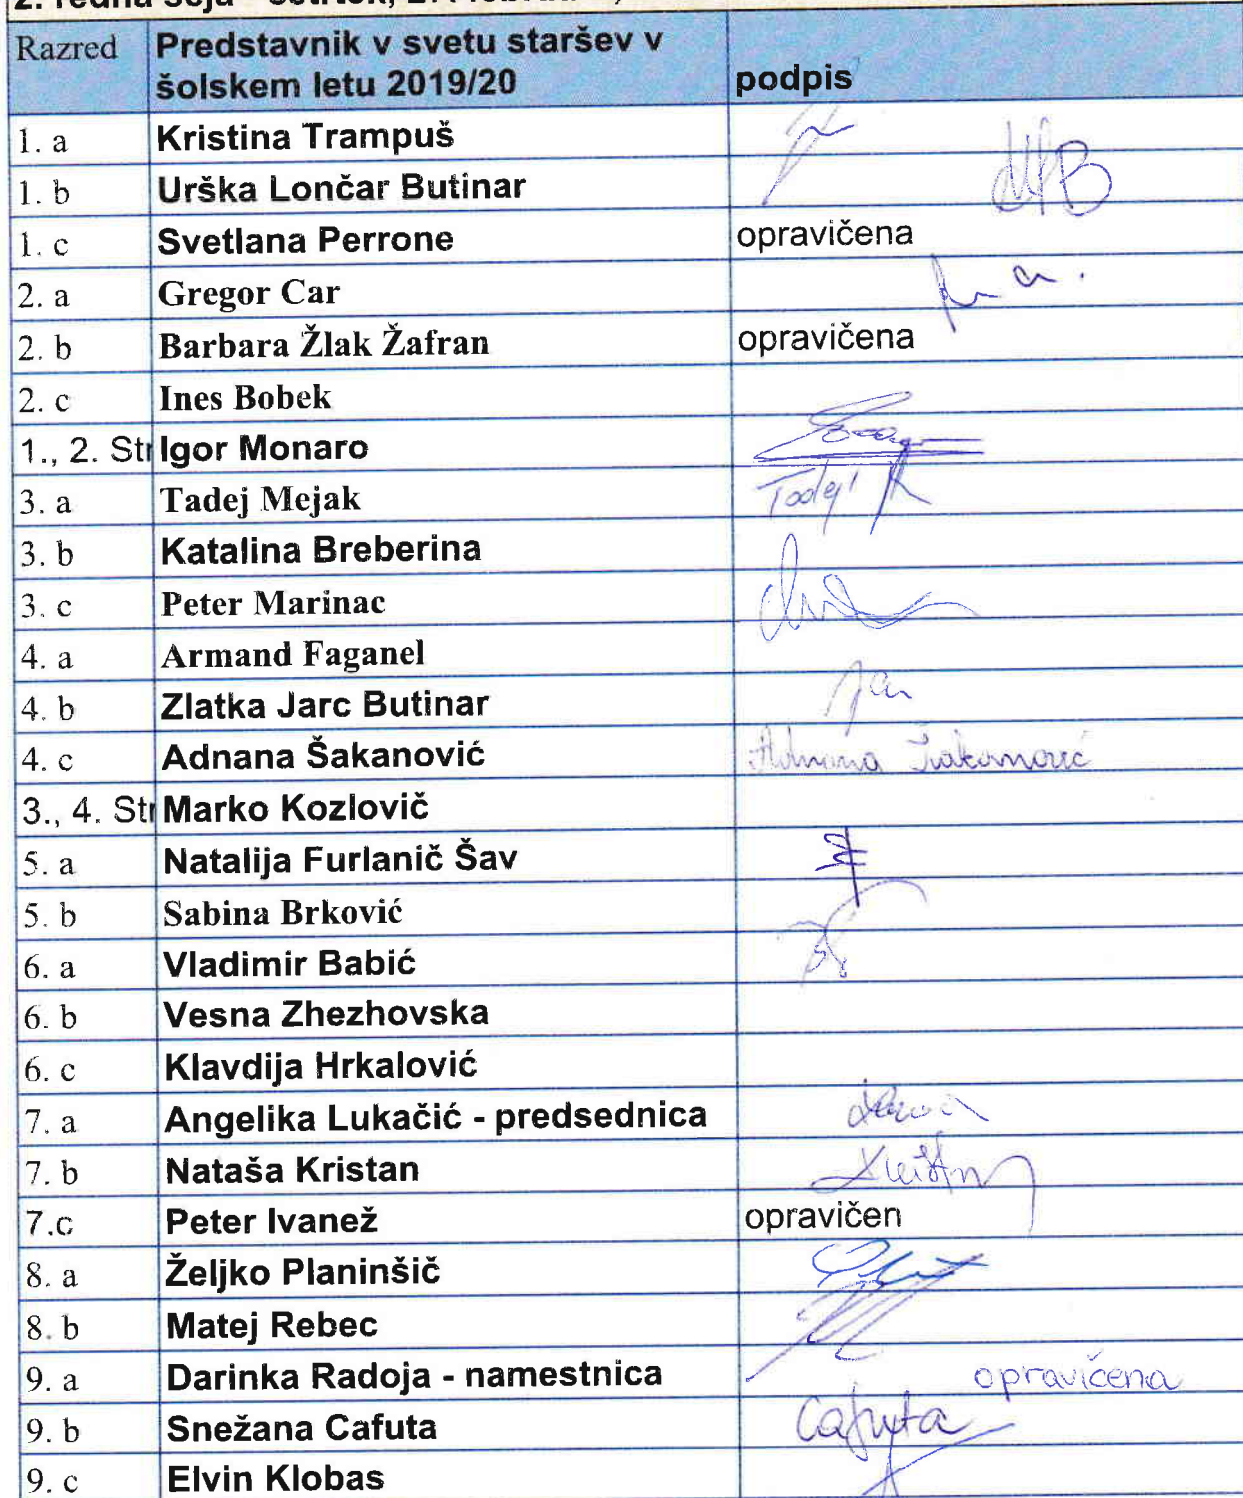 2. redna seja
Razred Predstavnik v svetu staršev v
šolskem letu 2019/20 podpis
1. a Kristina Trampuš
1. b Urška Lončar Butinar
1. c Svetlana Perrone opravičena
2. a Gregor Car
2. b Barbara Žlak Žafran opravičena
2. c Ines Bobek
1., 2. Str Igor Monaro
3. a Tadej Mejak Tadej
3. b Katalina Breberina
3. c Peter Marinac
4. a Armand Faganel
4. b Zlatka Jarc Butinar
4. c Adnana Šakanović Adnana Šakanović
3., 4. Str Marko Kozlovič
5. a Natalija Furlanič Šav
5. b Sabina Brković
6. a Vladimir Babić
6. b Vesna Zhezhovska
6. c Klavdija Hrkalović
7. a Angelika Lukačić - predsednica
7. b Nataša Kristan
7.c Peter Ivanež opravičen
8. a Željko Planinšič
8. b Matej Rebec
9. a Darinka Radoja - namestnica opravičena
9. b Snežana Cafuta Cafuta
9. c Elvin Klobas